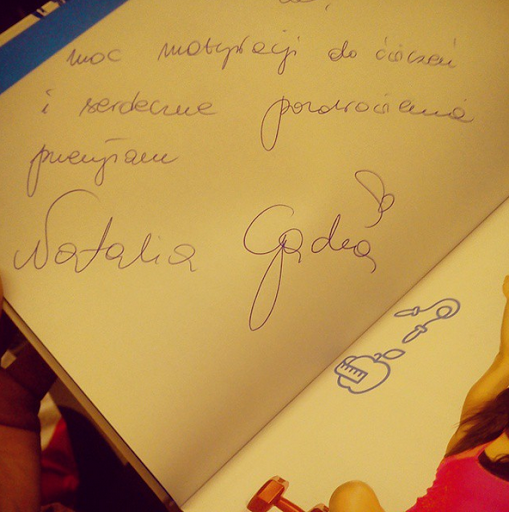 moc motywacji do ćwiczeń
i serdeczne pozdrowienia
przesyłam
Natalia Gacka